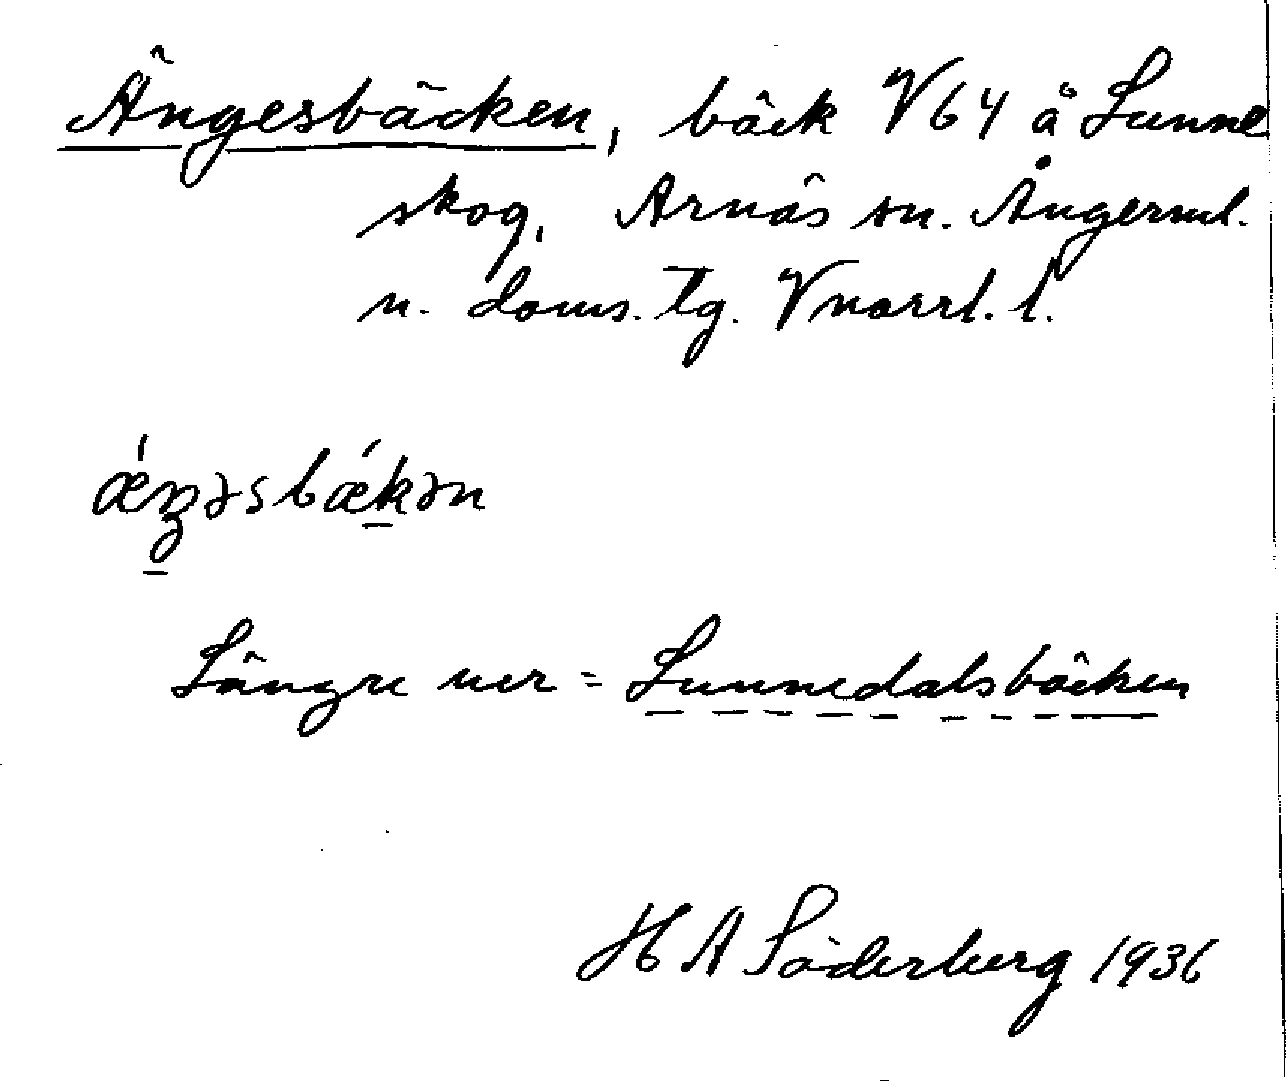 Ängesbäcken, bäck V64 å Sunne
skog, Arnäs sn. Ångerml.
n. doms. tg. Vnorrl. l.
ǽŋəsbǽkən
Längre ner = Sunnedalsbäcken
H A Söderberg 1936